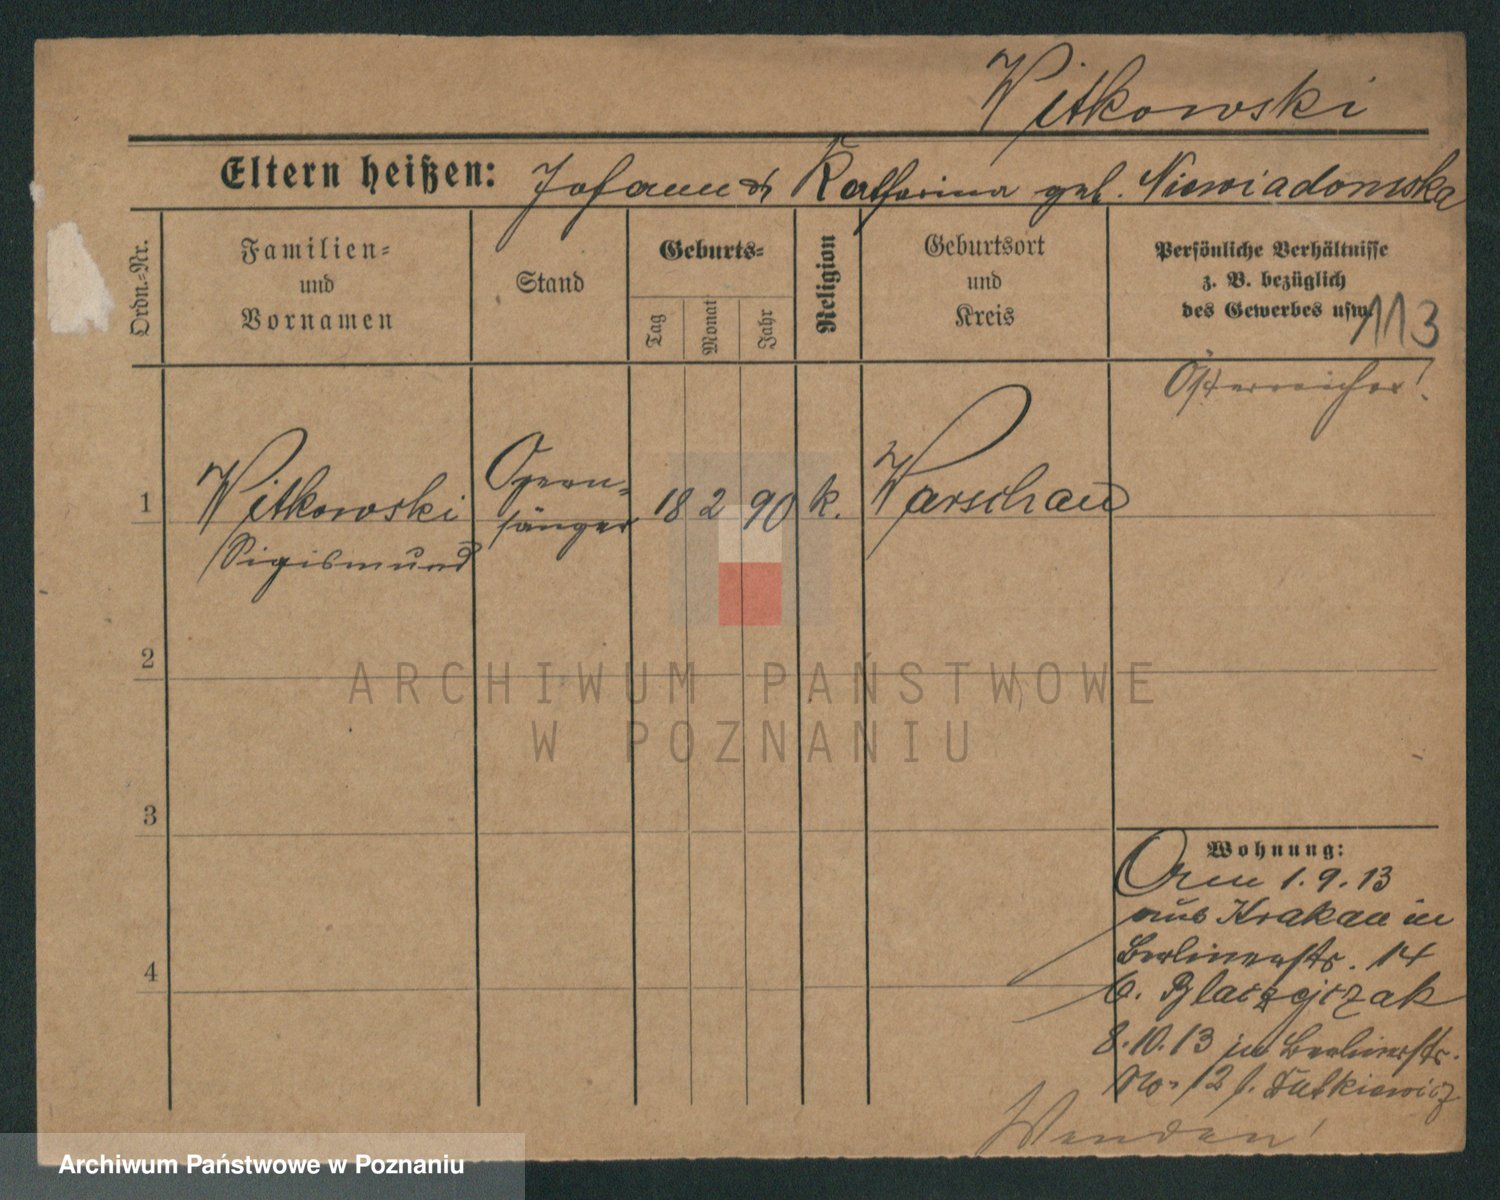 Witkowski
Eltern heißen: Johann & Katharina geb. Niewiadomska
Ordn.-Nr.
Familien-
und
Vornamen
Stand
Geburts-
Tag
Monat
Jahr
Religion
Geburtsort
und
Kreis
Persönliche Verhältnisse
z. B. bezüglich
des Gewerbes usw.
113
Österreicher!
1
Witkowski
Sigismund
Opern-
sänger
18 2 90 k. Warschau
2
3
4
Wohnung:
1.9.13
aus Krakau in
Berlinerstr. 14
b. Blaszejczak
8.10.13 in Berlinerstr.
No. 12 b. Dutkiewicz
Wenden!
ARCHIWUM PAŃSTWOWE
W POZNANIU
Archiwum Państwowe w Poznaniu